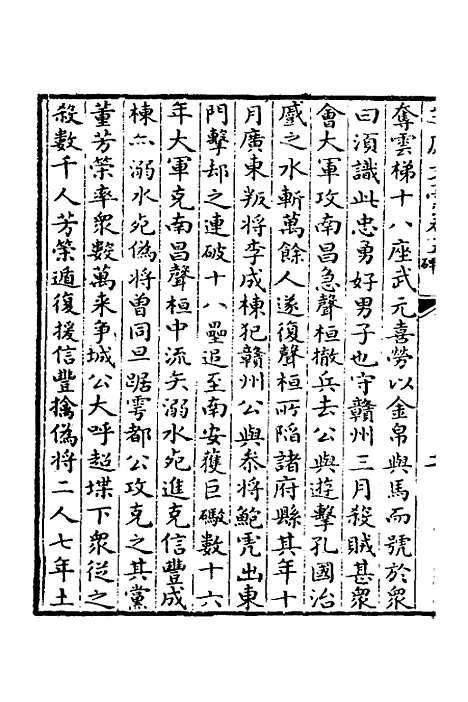 奪雲梯十八座武元喜勞以金帛與馬而號於衆
曰須識此忠勇好男子也守贛州三月殺賊甚衆
會大軍攻南昌急聲桓撤兵去公與遊擊孔國治
戲之水斬萬餘人遂復聲桓所陷諸府縣其年十
月廣東叛將李成棟犯贛州公與叅將鮑虎出東
門擊却之連破十八壘追至南安獲巨礮數十六
年大軍克南昌聲桓中流矢溺水死進克信豐成
棟亦溺水死偽將曾同旦踞雩都公攻克之其黨
董芳策率衆數萬来爭城公大呼超堞下衆從之
殺數千人芳策遁復援信豐擒偽將二人七年土